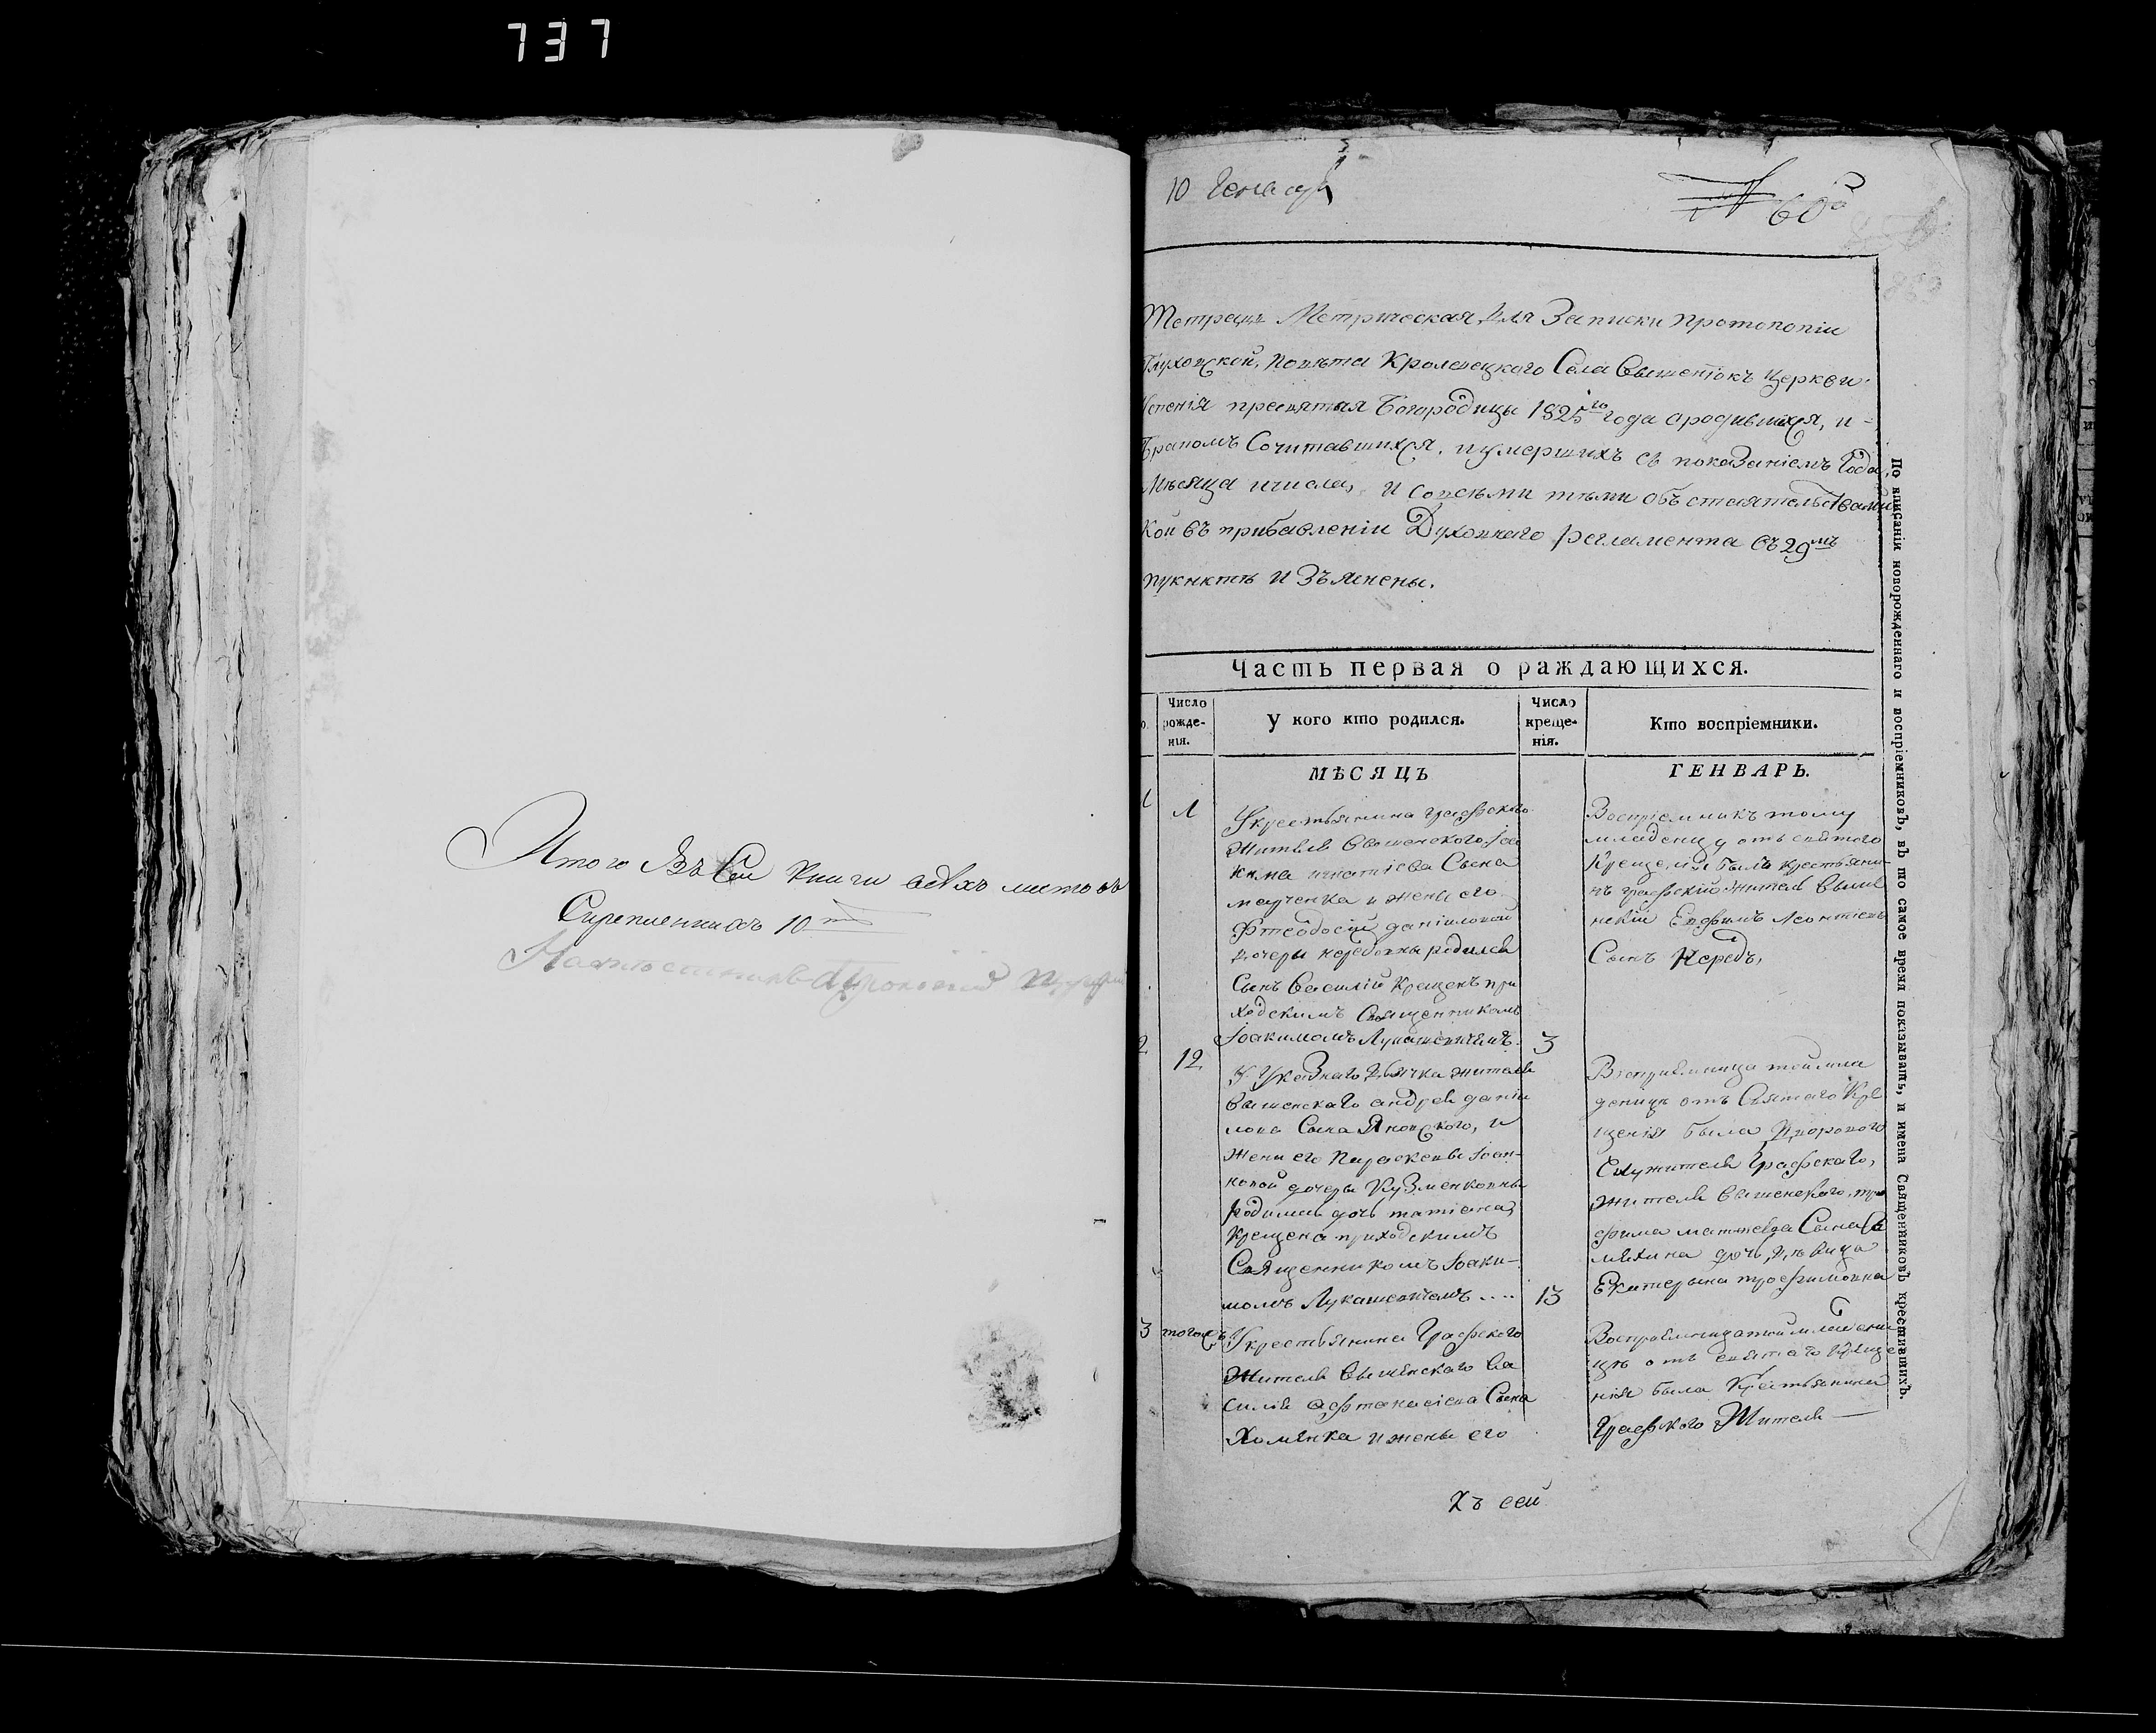 737
Итого Въ Сей книги всѣхъ листовъ
Скрепленныхъ 10ть
10 Генваря
№ 60й
Тетрадь Метрическая для Записки протопопіи
Глуховской, повѣта Кролевецкого Села Свышенокъ Церкви
Успенія пресвятыя Богородицы 1825го года ородившихся, и
Бракомъ Сочитавшихся, иумершихъ съ показаніемъ Года,
Мѣсяца ичисла, и совсѣми тѣми объстоятельствами
Кои въ прибавленіи Духовнаго регламента въ 29мъ
пункктѣ и Зъяснены.
Часть первая о раждающихся.
Число рожденія.
у кого кто родился.
Число крещенія.
Кто воспріемники.
МѢСЯЦЪ
ГЕНВАРЬ.
1
1
Укрестьянина графского
Жителя Свышенского Іоа
кима игнатіева Сына
марченка и жены его
Фтеодосіи даніиловой
дочеры передовны родился
Сынъ Василій Крещенъ при
ходскимъ Священникомъ
Іоакимомъ Лукашевичемъ.
3
Воспріемникъ тому
младенцу отъ святого
Крещенія былъ крестьяни
нъ графскій житель Свыше
нскій Ефимъ Леонтіевъ
Сынъ Передъ,
2
12
У Указнаго Дьячка жителя
Свышенскаго андрея даніи
лова Сына Яновского, и
жены его Параскевы Іоан-
новой дочеры Кузменковны
родилась дочь татіана,
Крещена приходскимъ
Священникомъ Іоаки-
момъ Лукашевичемъ ....
13
Воспріемница той мла
деницы отъ Святаго Кре
щенія была Дворового
Служителя Графскаго,
жителя Свышенского, тро
фима матвѣева Сына
дочь, дѣвица
Екатерына трофимовна
3
тогожъ
Укрестьянина Графского
Жителя Свышенскаго Ва
силія афтанасіева Сына
Хоменка ижены его
Воспріемница той младени
цы отъ святаго Креще
нія была Крестьянина
Графского Жителя —
хъ сей
По вписаніи новорожденнаго и воспріемниковъ, въ то самое время показывать, и имена Священниковъ крестившихъ.